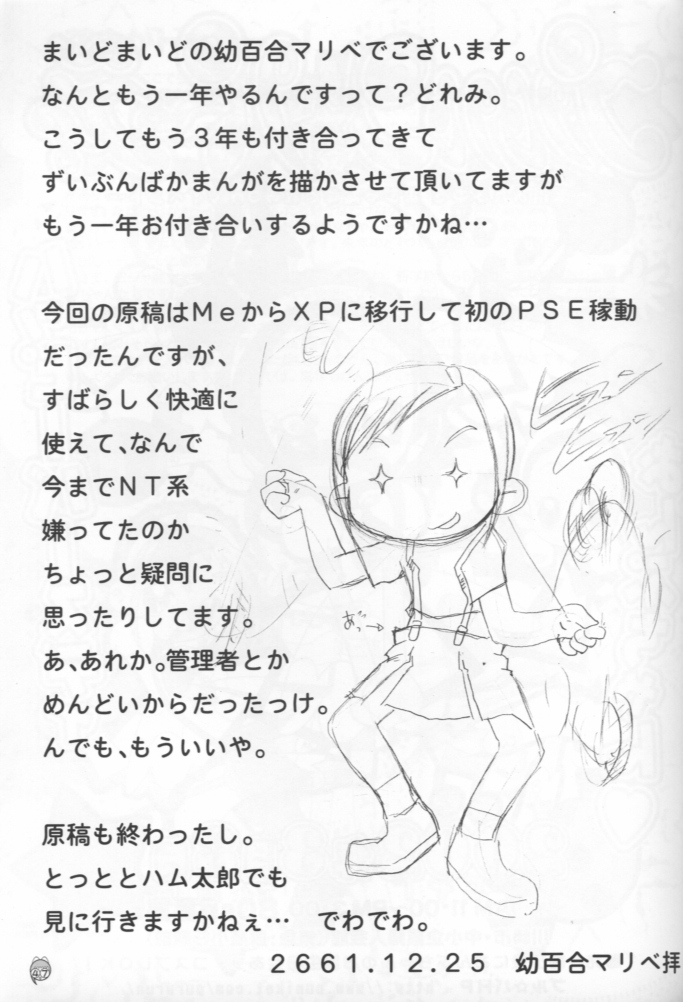 まいどまいどの幼百合マリベでございます。
なんともう一年やるんですって？どれみ。
こうしてもう３年も付き合ってきて
ずいぶんばかまんがを描かさせて頂いてますが
もう一年お付き合いするようですかね…
今回の原稿はＭｅからＸＰに移行して初のＰＳＥ稼動
だったんですが、
すばらしく快適に
使えて、なんで
今までＮＴ系
嫌ってたのか
ちょっと疑問に
思ったりしてます。
あ、あれか。管理者とか
めんどいからだったっけ。
んでも、もういいや。
あっ→
原稿も終わったし。
とっととハム太郎でも
見に行きますかねぇ… でわでわ。
２６６１.１２.２５ 幼百合マリベ拝
47